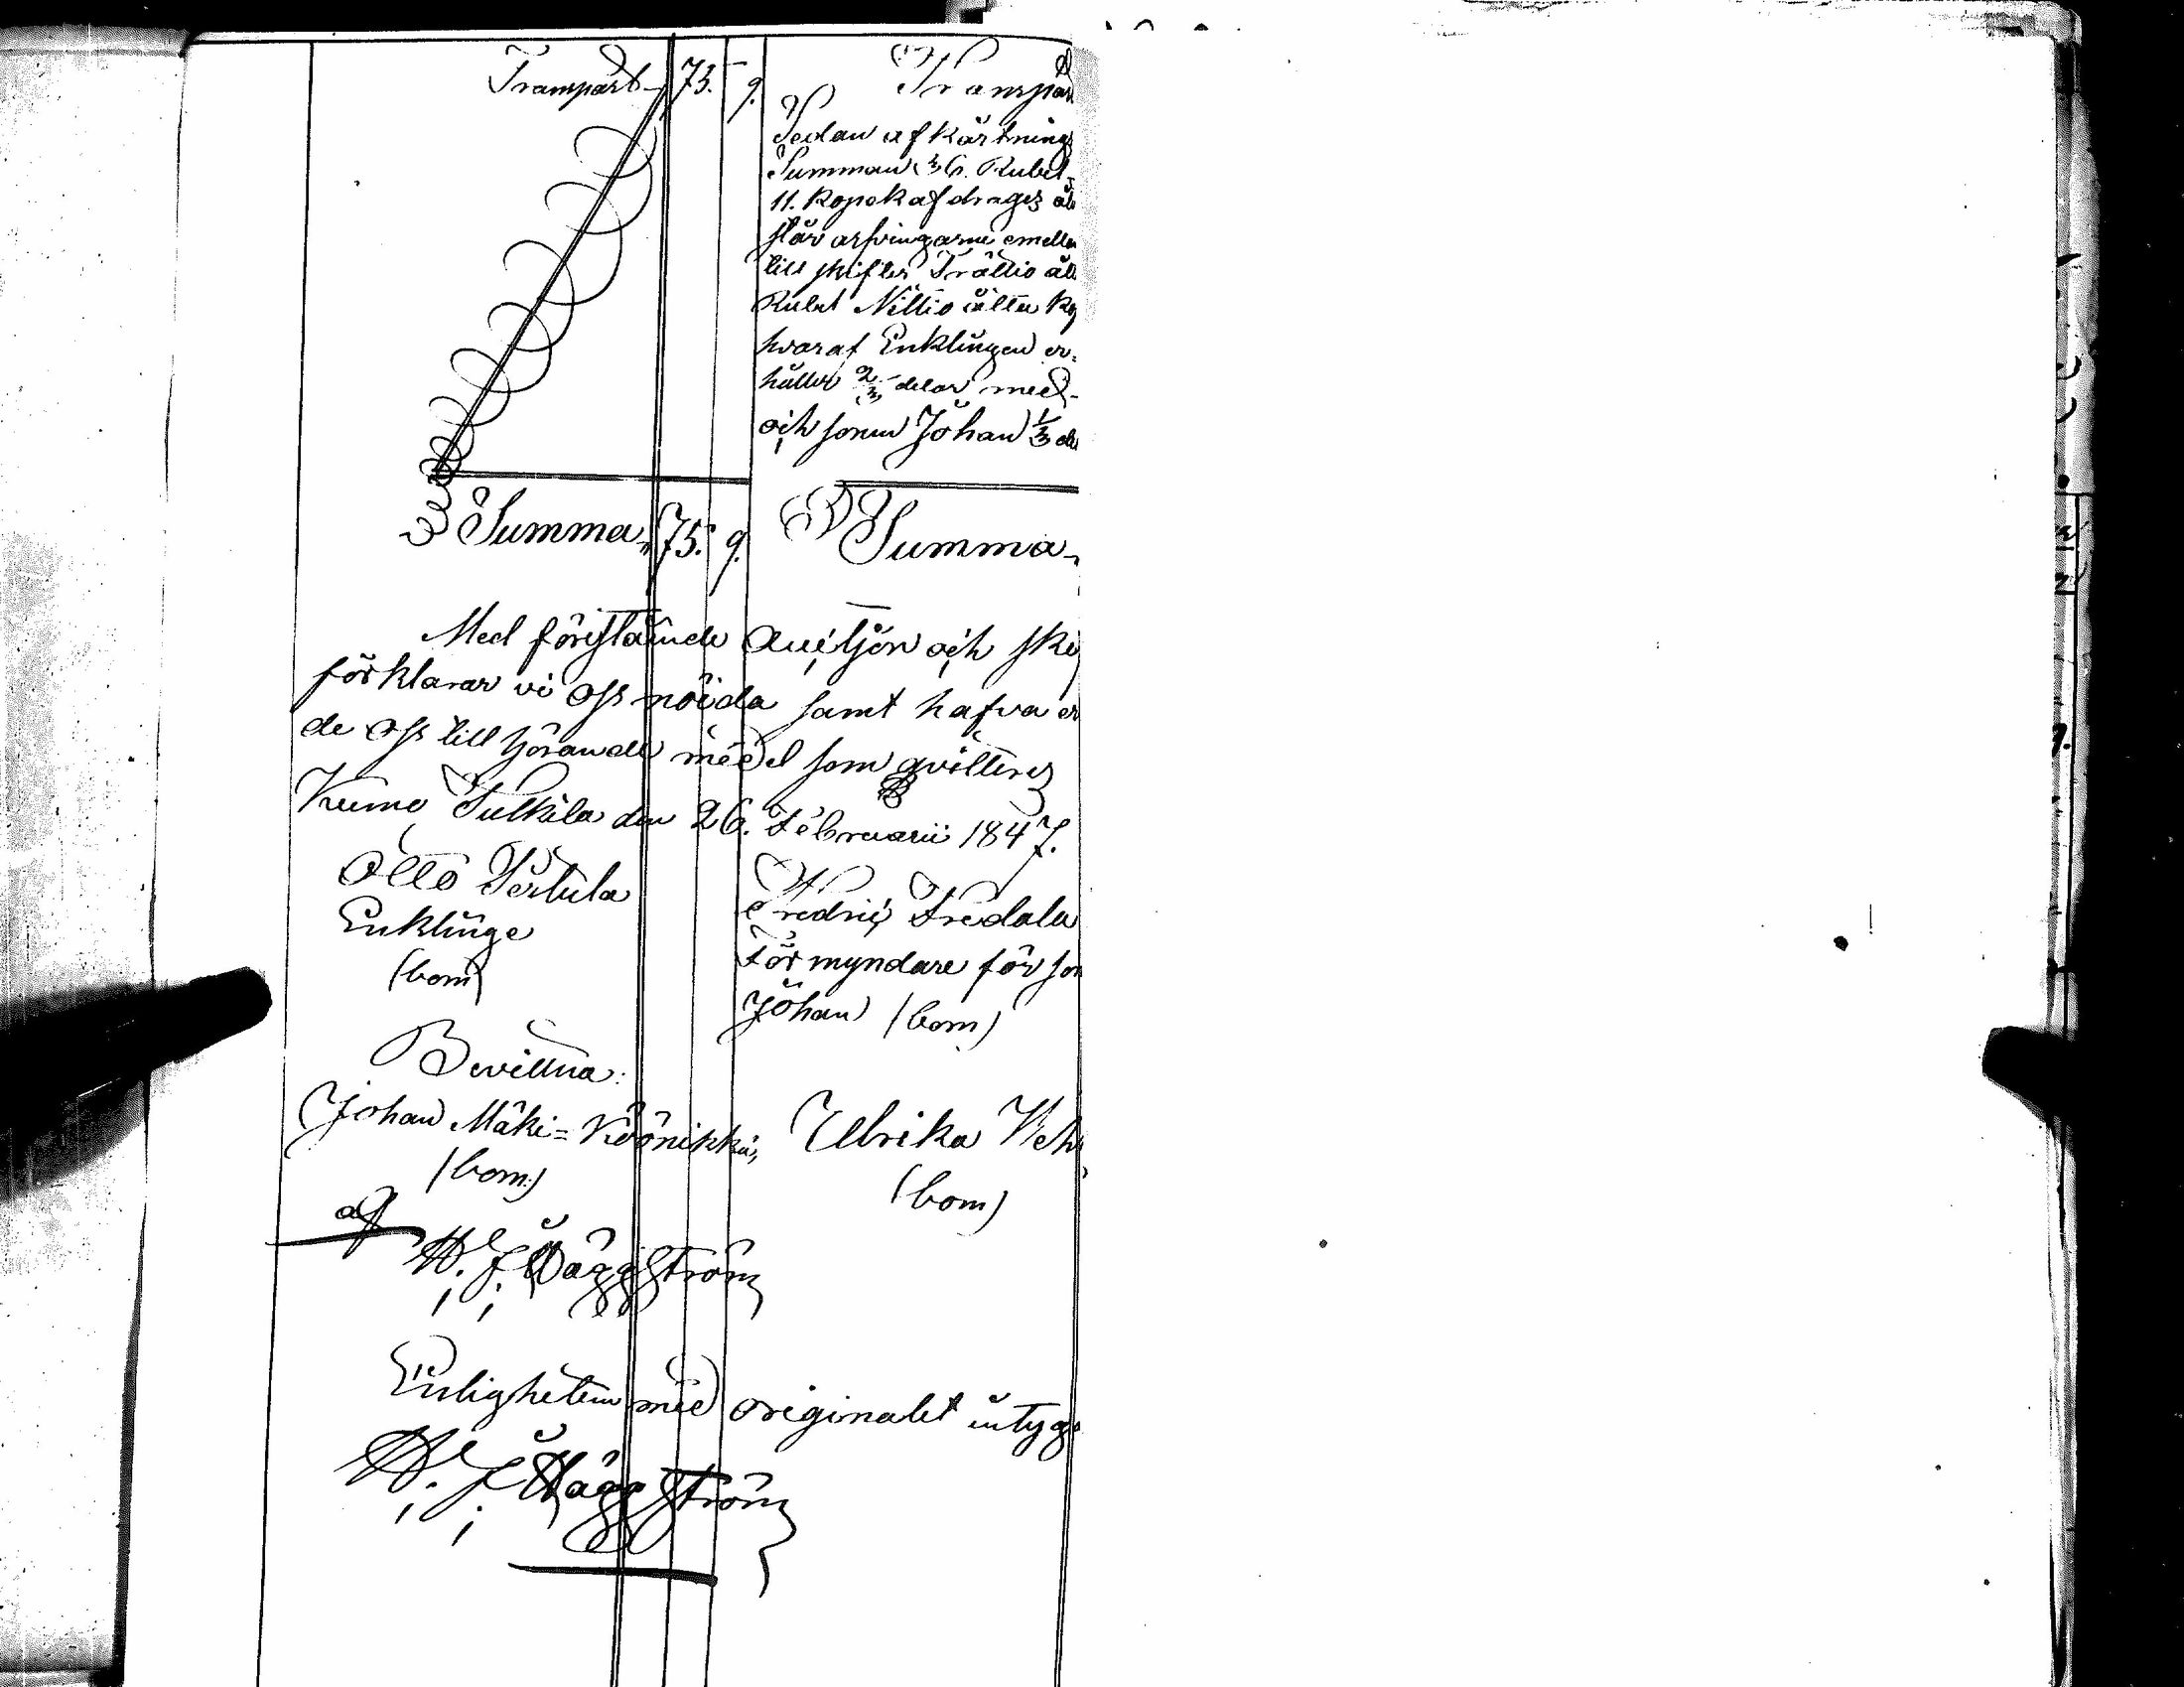 Transport 75. 9.
Transpor
Sedan afkårtnings
Summan 36. Rubel
11. kopek afdrages åte
står arfvingarne emella
till skiftes Trättio åtta
Rubel Nittio åtta kop
hvaraf Enklingen er=
håller 2/3 delar med
och sonen Johan 1/3 de
Summa 75. 9.
Summa
Med förestående Auctjon och ski
förklarar vi oss nöida samt hafva er
de oss tillhörande medel som qvitteras
Kumo Sulkila den 26. Februarii 1847.
Otto Pertula
Enklinge
(bom)
Fredric Fredala
Förmyndare för son
Johan (bom)
Bevittna:
Johan Mäki=Köönikkä,
(bom)
Ulrika Weh
(bom)
af
W. J. Häggström
Enligheten med originalet intyga
W. J. Häggström